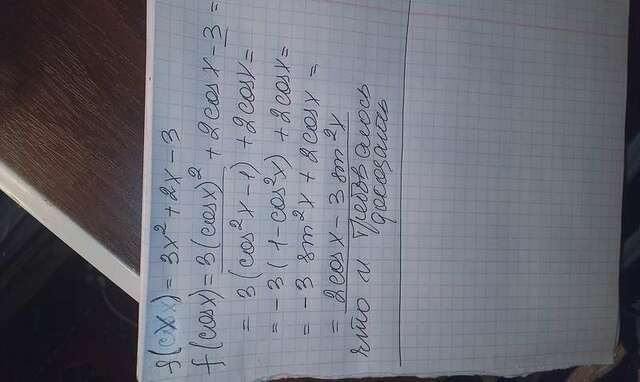 f(x) = 3x² + 2x - 3
f(cosx) = 3(cosx)² + 2cosx - 3 =
= 3(cos²x - 1) + 2cosx =
= -3(1 - cos²x) + 2cosx =
= -3 sin²x + 2cosx =
= 2cosx - 3 sin²x
что и требовалось
доказать